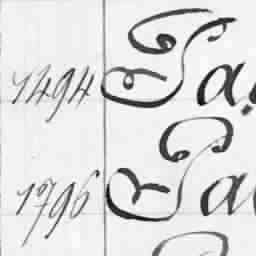 1494 Pa
1796 Pa